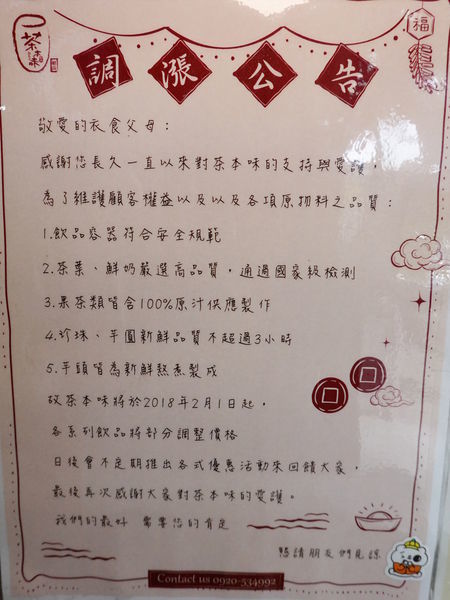 一茶本味
福
調漲公告
敬愛的衣食父母：
感謝您長久一直以來對茶本味的支持與愛護，
為了維護顧客權益以及以及各項原物料之品質：
1.飲品容器符合安全規範
2.茶葉、鮮奶嚴選高品質，通過國家級檢測
3.果茶類皆含100%原汁供應製作
4.珍珠、芋圓新鮮品質不超過3小時
5.芋頭皆為新鮮熬煮製成
故茶本味將於2018年2月1日起，
各系列飲品將部分調整價格
日後會不定期推出各式優惠活動來回饋大家，
最後再次感謝大家對茶本味的愛護。
我們的最好 需要您的肯定
懇請朋友們見諒
Contact us 0920-534992